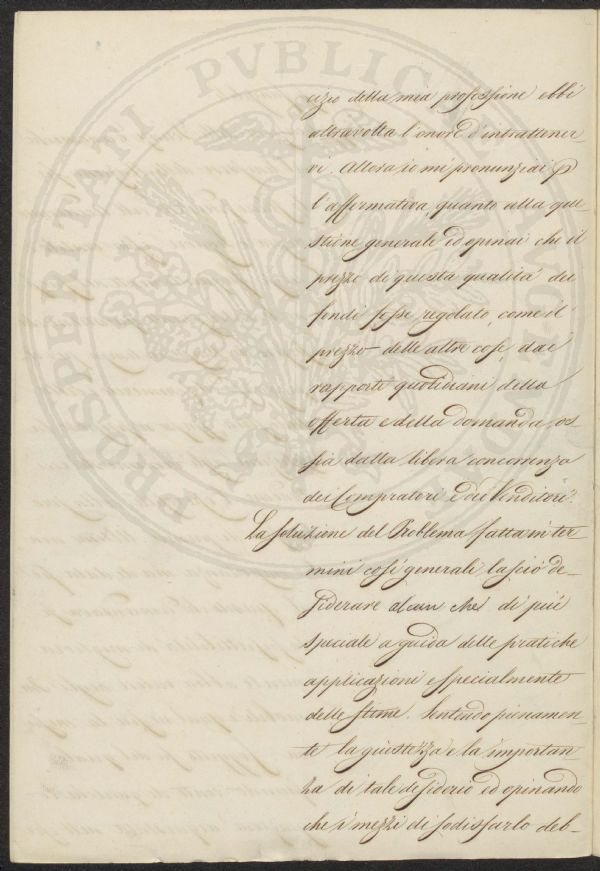 cizio della mia professione ebbi
altravolta l'onore d'intrattener-
vi. Allora io mi pronunziai p
l'affermativa, quanto alla que-
stione generale ed opinai che il
prezzo di questa qualità dei
fondi fosse regolato, come il
prezzo delle altre cose dai
rapporti quotidiani della
offerta e della domanda, os-
sia dalla libera concorrenza
dei Compratori e dei Venditori.
La soluzione del Problema fatta in ter-
mini così generali, lasciò de-
siderare alcun chè di più
speciale a guida delle pratiche
applicazioni e specialmente
delle stime. Sentendo pienamen-
te la giustezza e la importan-
za di tale desiderio ed opinando
che i mezzi di sodisfarlo deb-
PROSPERITATI PVBLICAE